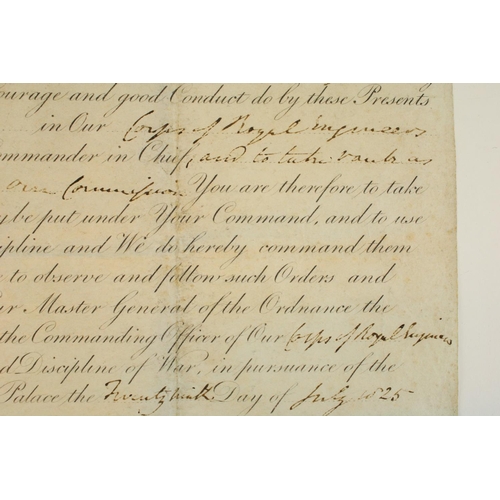 ourage and good Conduct do by these Presents
in Our Corps of Royal Engineers
ommander in Chief, and to take rank as
our Commission You are therefore to take
y be put under Your Command, and to use
cipline and We do hereby command them
e to observe and follow such Orders and
ur Master General of the Ordnance the
the Commanding Officer of Our Corps of Royal Engineers
d Discipline of War, in pursuance of the
Palace the Twenty ninth Day of July 1825